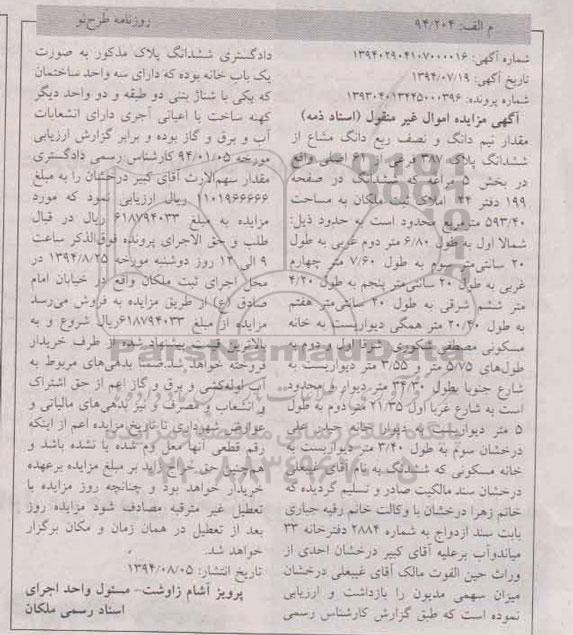 م الف: ۹۴/۲۰۴
روزنامه طرح‌نو
شماره آگهی: ۱۳۹۴۰۲۹۰۴۱۰۷۰۰۰۰۱۶
تاریخ آگهی: ۱۳۹۴/۰۷/۱۹
شماره پرونده: ۱۳۹۳۰۴۰۱۳۴۴۵۰۰۰۳۹۶
آگهی مزایده اموال غیر منقول (اسناد ذمه)
مقدار نیم دانگ و نصف ربع دانگ مشاع از
ششدانگ پلاک ۳۸۷ فرعی از ۶۱ اصلی واقع
در بخش ۵ مراغه که ششدانگ در صفحه
۱۹۹ دفتر ۲۴ املاک ثبت ملکان به مساحت
۵۹۳/۴۰ مترمربع محدود است به حدود ذیل:
شمالا اول به طول ۶/۸۰ متر دوم غربی به طول
۲۰ سانتی‌متر سوم به طول ۷/۶۰ متر چهارم
غربی به طول ۲۰ سانتی‌متر پنجم به طول ۴/۲۰
متر ششم شرقی به طول ۲۰ سانتی‌متر هفتم
به طول ۲۰/۴۰ متر همگی دیواریست به خانه
مسکونی مصطفی شکوری شرقا اول و دوم به
طول‌های ۵/۷۵ متر و ۳/۵۵ متر دیواریست به
شارع جنوبا بطول ۳۴/۳۰ متر دیوار و محدود
است به شارع غربا اول ۲۱/۳۵ متر دوم به طول
۵ متر دیواریست به دیوار خانه حیدر علی
درخشان سوم به طول ۳/۴۰ متر دیواریست به
خانه مسکونی که ششدانگ به نام آقای غیبعلی
درخشان سند مالکیت صادر و تسلیم گردیده که
خانم زهرا درخشان با وکالت خانم رقیه جباری
بابت سند ازدواج به شماره ۲۸۸۴ دفترخانه ۳۳
میاندوآب برعلیه آقای کبیر درخشان احدی از
وراث حین الفوت مالک آقای غیبعلی درخشان
میزان سهمی مدیون را بازداشت و ارزیابی
نموده است که طبق گزارش کارشناس رسمی
دادگستری ششدانگ پلاک مذکور به صورت
یک باب خانه بوده که دارای سه واحد ساختمان
که یکی با شناژ بتنی دو طبقه و دو واحد دیگر
کهنه ساخت با اعیانی آجری دارای انشعابات
آب و برق و گاز بوده و برابر گزارش ارزیابی
مورخه ۹۴/۰۱/۰۵ کارشناس رسمی دادگستری
مقدار سهم‌الارث آقای کبیر درخشان را به مبلغ
۱۱۰۱۹۶۶۶۶۶ ریال ارزیابی نمود که مورد
مزایده به مبلغ ۶۱۸۷۹۴۰۳۳ ریال در قبال
طلب و حق الاجرای پرونده فوق‌الذکر ساعت
۹ الی ۱۲ روز دوشنبه مورخه ۱۳۹۴/۸/۲۵ در
محل اجرای ثبت ملکان واقع در خیابان امام
صادق (ع) از طریق مزایده به فروش می‌رسد
مزایده از مبلغ ۶۱۸۷۹۴۰۳۳ ریال شروع و به
بالاترین قیمت پیشنهاد شده از طرف خریدار
فروخته خواهد شد. ضمنا بدهی‌های مربوط به
آب لوله‌کشی و برق و گاز اعم از حق اشتراک
و انشعاب و مصرف و نیز بدهی‌های مالیاتی و
عوارض شهرداری تا تاریخ مزایده اعم از اینکه
رقم قطعی آنها معلوم شده یا نشده باشد و
همچنین حق حراج باید بر مبلغ مزایده برعهده
خریدار خواهد بود و چنانچه روز مزایده با
تعطیل غیر مترقبه مصادف شود مزایده روز
بعد از تعطیل در همان زمان و مکان برگزار
خواهد شد.
تاریخ انتشار: ۱۳۹۴/۰۸/۰۵
پرویز آشام زاوشت- مسئول واحد اجرای
اسناد رسمی ملکان
ParsNamadData
پایگاه اطلاع رسانی مناقصه و مزایده